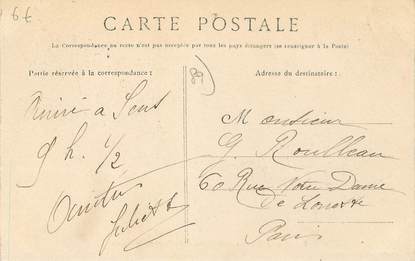 6€
CARTE POSTALE
La Correspondance au recto n'est pas acceptée par tous les pays étrangers (se renseigner à la Poste)
Partie réservée à la correspondance :
Adresse du destinataire :
Arrivé a Sens
9 h. 1/2
Juliette
Monsieur
G. Roulleau
60 Rue Notre Dame
de Lorette
Paris